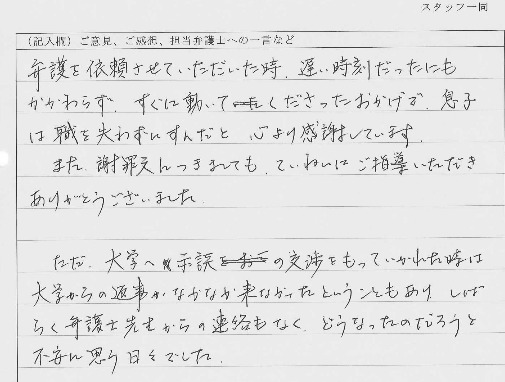 スタッフ一同
（記入欄）ご意見、ご感想、担当弁護士への一言など
弁護を依頼させていただいた時、遅い時刻だったにも
かかわらず すぐに動いてくださったおかげで、息子
は職を失わずにすんだと 心より感謝しています。
また、謝罪文につきましても、ていねいにご指導いただき
ありがとうございました。
ただ、大学へ示談の交渉をもっていかれた時は
大学からの返事がなかなか来なかったということもあり、しば
らく弁護士先生からの連絡もなく、どうなったのだろうと
不安に思う日々でした。